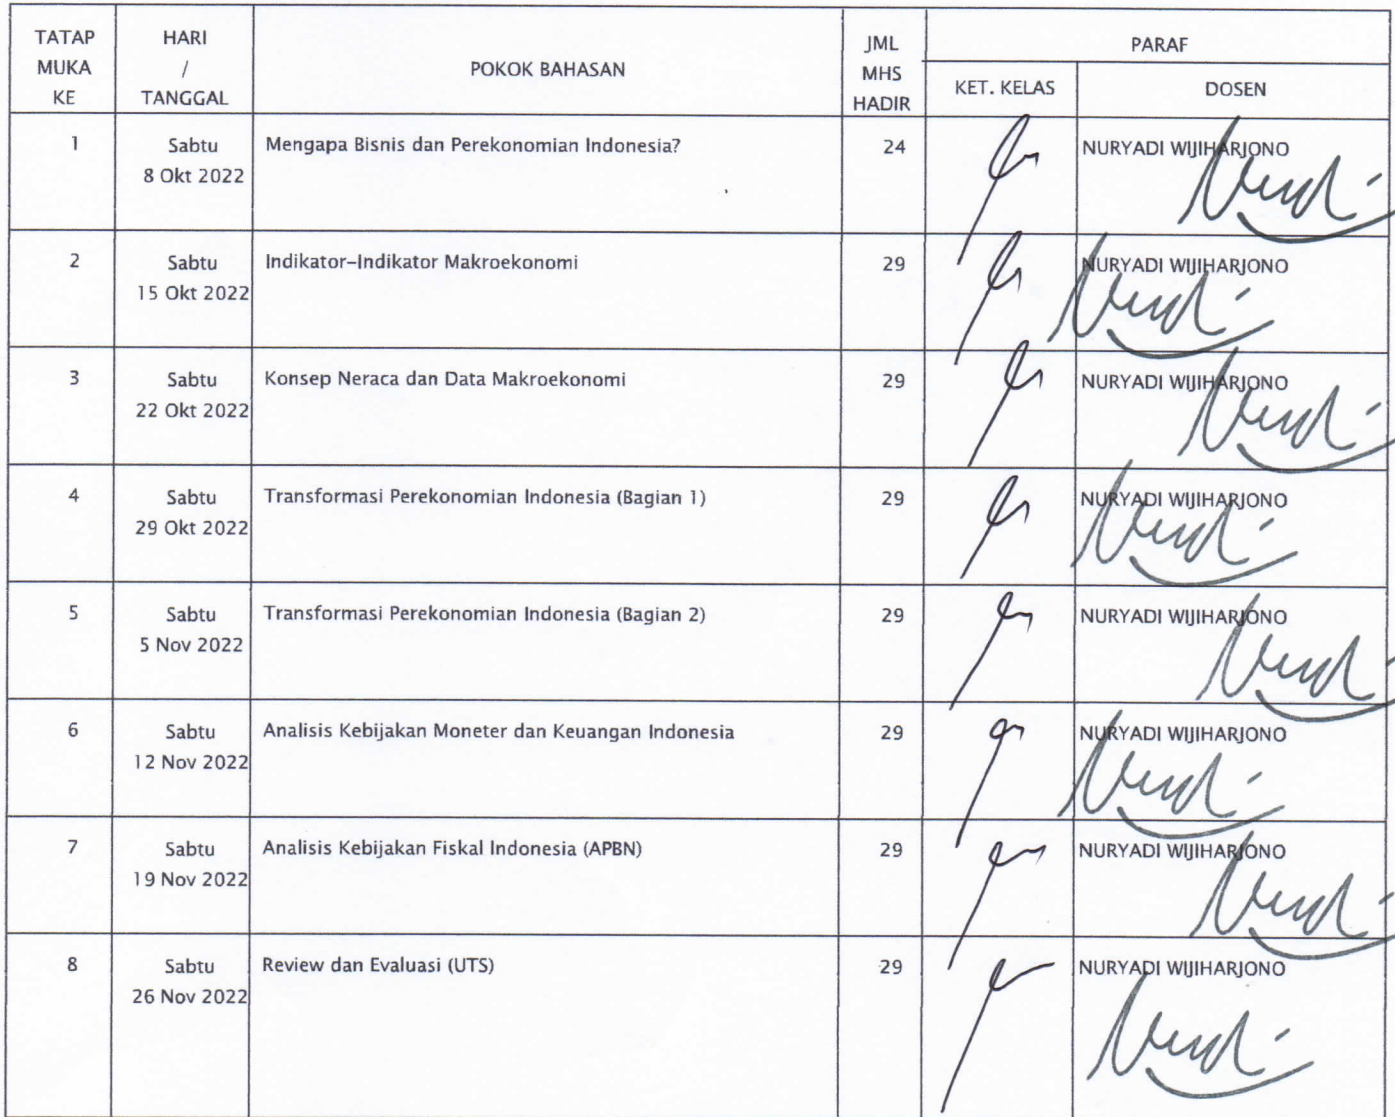 TATAP MUKA KE
HARI / TANGGAL
POKOK BAHASAN
JML MHS HADIR
PARAF
KET. KELAS
DOSEN
1
Sabtu
8 Okt 2022
Mengapa Bisnis dan Perekonomian Indonesia?
24
NURYADI WIJIHARJONO
2
Sabtu
15 Okt 2022
Indikator-Indikator Makroekonomi
29
NURYADI WIJIHARJONO
3
Sabtu
22 Okt 2022
Konsep Neraca dan Data Makroekonomi
29
NURYADI WIJIHARJONO
4
Sabtu
29 Okt 2022
Transformasi Perekonomian Indonesia (Bagian 1)
29
NURYADI WIJIHARJONO
5
Sabtu
5 Nov 2022
Transformasi Perekonomian Indonesia (Bagian 2)
29
NURYADI WIJIHARJONO
6
Sabtu
12 Nov 2022
Analisis Kebijakan Moneter dan Keuangan Indonesia
29
NURYADI WIJIHARJONO
7
Sabtu
19 Nov 2022
Analisis Kebijakan Fiskal Indonesia (APBN)
29
NURYADI WIJIHARJONO
8
Sabtu
26 Nov 2022
Review dan Evaluasi (UTS)
29
NURYADI WIJIHARJONO